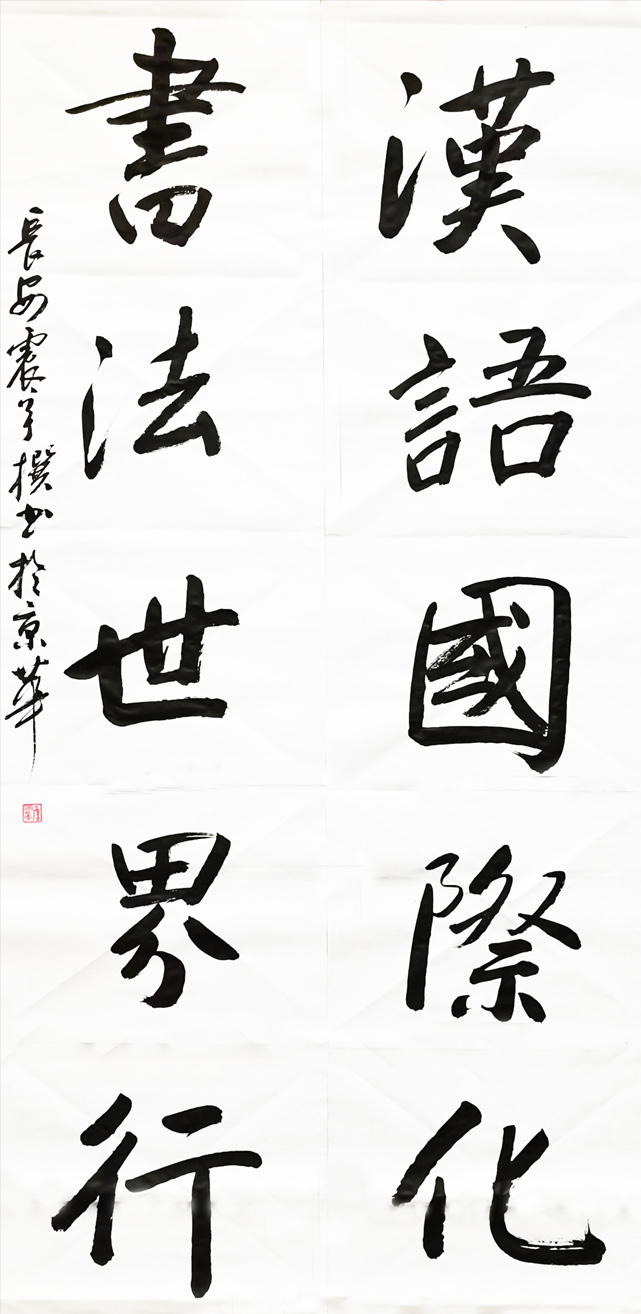 漢語國際化
書法世界行
長安震子撰書於京華